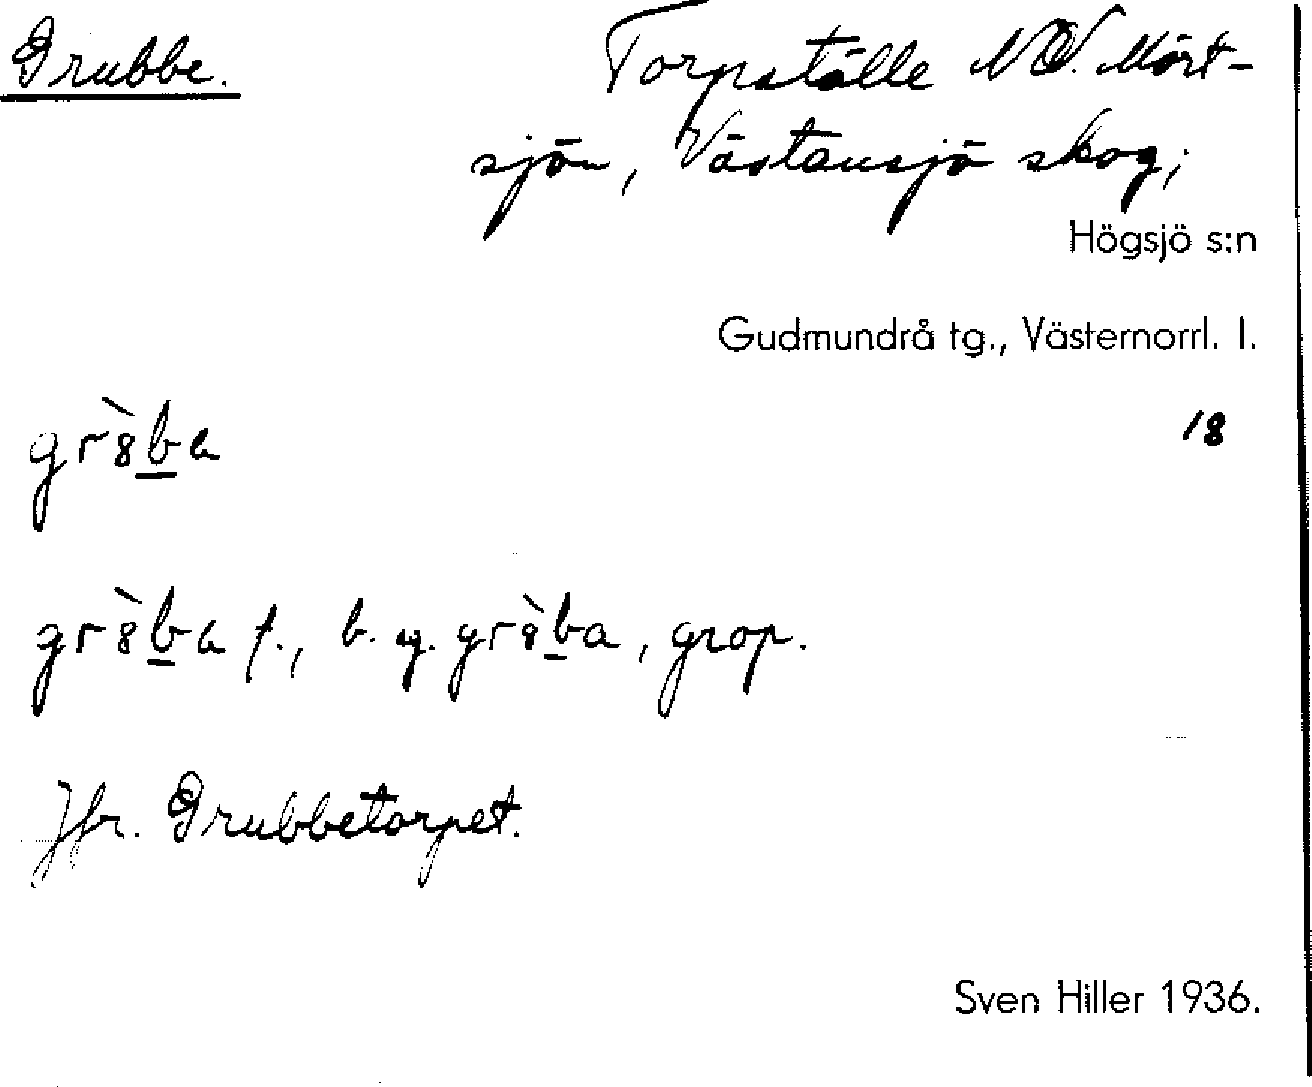 Grubbe. Torpställe NV. Mört-
sjön, Västansjö skog;
Högsjö s:n
Gudmundrå tg., Västernorrl. l.
18
grȣ̀b̲a
grȣ̀b̲a f., b. g. grȣ̀b̲a, grop.
Jfr. Grubbetorpet.
Sven Hiller 1936.